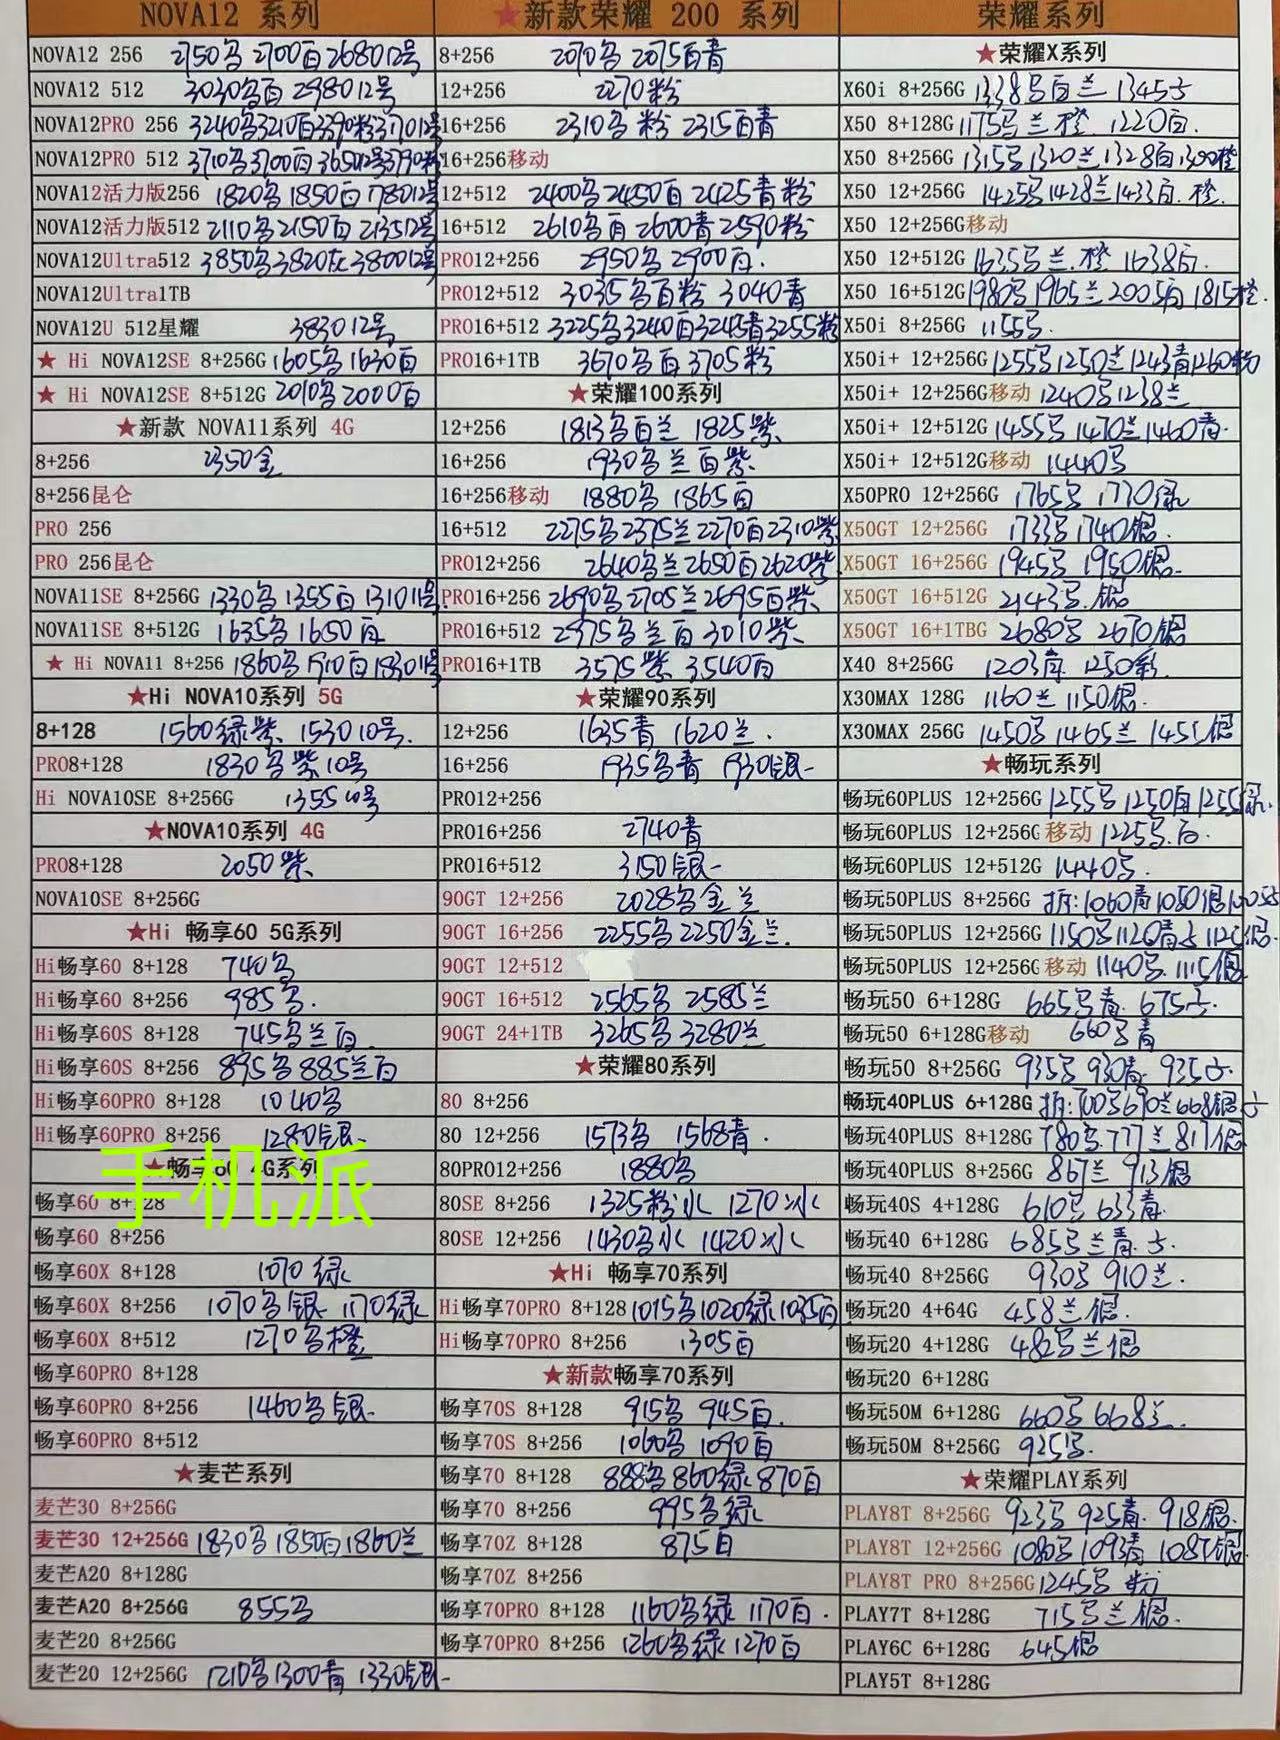 NOVA12 系列
NOVA12 256 2750 2700白 2680 12号
NOVA12 512 3030 白 2980 12号
NOVA12PRO 256 3240 3210白
NOVA12PRO 512 3710 3700白
NOVA12活力版256 1820 1850白 1780 12号
NOVA12活力版512 2110 2150白 2135 12号
NOVA12Ultra512 3850 3820灰 3800 12号
NOVA12Ultra1TB
NOVA12U 512星耀 3830 12号
★ Hi NOVA12SE 8+256G 1605 1630白
★ Hi NOVA12SE 8+512G 2010 2000白
★新款 NOVA11系列 4G
8+256 2350金
8+256昆仑
PRO 256
PRO 256昆仑
NOVA11SE 8+256G 1330 1355白 1310 11号
NOVA11SE 8+512G 1635 1650白
★ Hi NOVA11 8+256 1860 1910白 1830 11号
★Hi NOVA10系列 5G
8+128 1560绿紫 1530 10号.
PRO8+128 1830 紫 10号
Hi NOVA10SE 8+256G 1355 10号
★NOVA10系列 4G
PRO8+128 2050紫
NOVA10SE 8+256G
★Hi 畅享60 5G系列
Hi畅享60 8+128 740
Hi畅享60 8+256 985
Hi畅享60S 8+128 745 兰白
Hi畅享60S 8+256 895 885兰白
Hi畅享60PRO 8+128 1040
Hi畅享60PRO 8+256 1280银
手机派
★畅享60 4G系列
畅享60 8+128
畅享60 8+256
畅享60X 8+128 1070绿
畅享60X 8+256 1070 银 1170绿
畅享60X 8+512 1270 橙
畅享60PRO 8+128
畅享60PRO 8+256 1460 银
畅享60PRO 8+512
★麦芒系列
麦芒30 8+256G
麦芒30 12+256G 1830 1850白 1860兰
麦芒A20 8+128G
麦芒A20 8+256G 855
麦芒20 8+256G
麦芒20 12+256G 1210 1300青 1330银
★新款荣耀 200 系列
8+256 2070 2075白青
12+256 2270粉
16+256 2310 粉 2315白青
16+256移动
12+512 2400 2450白 2425青粉
16+512 2610 白 2600青 2590粉
PRO12+256 2950 2900白.
PRO12+512 3035 白粉 3040青
PRO16+512 3225 3240白 3245青 3255粉
PRO16+1TB 3670 白 3705粉
★荣耀100系列
12+256 1813 白兰 1825紫
16+256 1930 兰白紫
16+256移动 1880 1865白
16+512 2275 2375兰 2270白 2310紫
PRO12+256 2640 兰 2650白 2620紫
PRO16+256 2690 2705兰 2695白紫
PRO16+512 2975 兰白 3010紫
PRO16+1TB 3575紫 3540白
★荣耀90系列
12+256 1635青 1620兰.
16+256 1935 青 1930银
PRO12+256
PRO16+256 2740青
PRO16+512 3150银
90GT 12+256 2028 金兰
90GT 16+256 2255 2250金兰.
90GT 12+512
90GT 16+512 2565 2585兰
90GT 24+1TB 3265 3280兰
★荣耀80系列
80 8+256
80 12+256 1573 1568青.
80PRO12+256 1880
80SE 8+256 1325粉 1270冰
80SE 12+256 1430 1420冰
★Hi 畅享70系列
Hi畅享70PRO 8+128 1015 1020绿 1035白
Hi畅享70PRO 8+256 1305白
★新款畅享70系列
畅享70S 8+128 915 945白.
畅享70S 8+256 1060 1090白
畅享70 8+128 888 860绿 870白
畅享70 8+256 995 绿
畅享70Z 8+128 875白
畅享70Z 8+256
畅享70PRO 8+128 1160 绿 1170白.
畅享70PRO 8+256 1260 绿 1270白
荣耀系列
★荣耀X系列
X60i 8+256G 1338 白兰 1345
X50 8+128G 1175 兰橙. 1220白.
X50 8+256G 1315 1320兰 1328白 1300橙
X50 12+256G 1425 1428兰 1433白. 橙.
X50 12+256G移动
X50 12+512G 1635 兰. 橙 1638白.
X50 16+512G 1980 1965兰 2005白 1815橙
X50i 8+256G 1155
X50i+ 12+256G 1255 1250兰 1243青 1260粉
X50i+ 12+256G移动 1240 1238兰
X50i+ 12+512G 1455 1470兰 1460青.
X50i+ 12+512G移动 1440
X50PRO 12+256G 1765 1770绿
X50GT 12+256G 1733 1740银.
X50GT 16+256G 1945 1950银.
X50GT 16+512G 2143 .银
X50GT 16+1TBG 2680 2670银
X40 8+256G 1203青 1250彩.
X30MAX 128G 1160兰 1150银.
X30MAX 256G 1450 1465兰 1455银
★畅玩系列
畅玩60PLUS 12+256G 1255 1250白 1255绿
畅玩60PLUS 12+256G移动 1225 .白.
畅玩60PLUS 12+512G 1440
畅玩50PLUS 8+256G 拆:1060青 1050银
畅玩50PLUS 12+256G 1150 1120青 1125银
畅玩50PLUS 12+256G移动 1140 1115银
畅玩50 6+128G 665 青. 675
畅玩50 6+128G移动 660 青
畅玩50 8+256G 935 930青. 935
畅玩40PLUS 6+128G 拆:700 690兰 668银
畅玩40PLUS 8+128G 780 .777兰 817银
畅玩40PLUS 8+256G 867兰 913银
畅玩40S 4+128G 610 633青
畅玩40 6+128G 685 兰青.
畅玩40 8+256G 930 910兰.
畅玩20 4+64G 458兰银.
畅玩20 4+128G 482 兰银
畅玩20 6+128G
畅玩50M 6+128G 660 668兰.
畅玩50M 8+256G 925
★荣耀PLAY系列
PLAY8T 8+256G 923 925青. 918银.
PLAY8T 12+256G 1080 1093青 1087银
PLAY8T PRO 8+256G 1245 粉
PLAY7T 8+128G 715 兰银.
PLAY6C 6+128G 645银
PLAY5T 8+128G